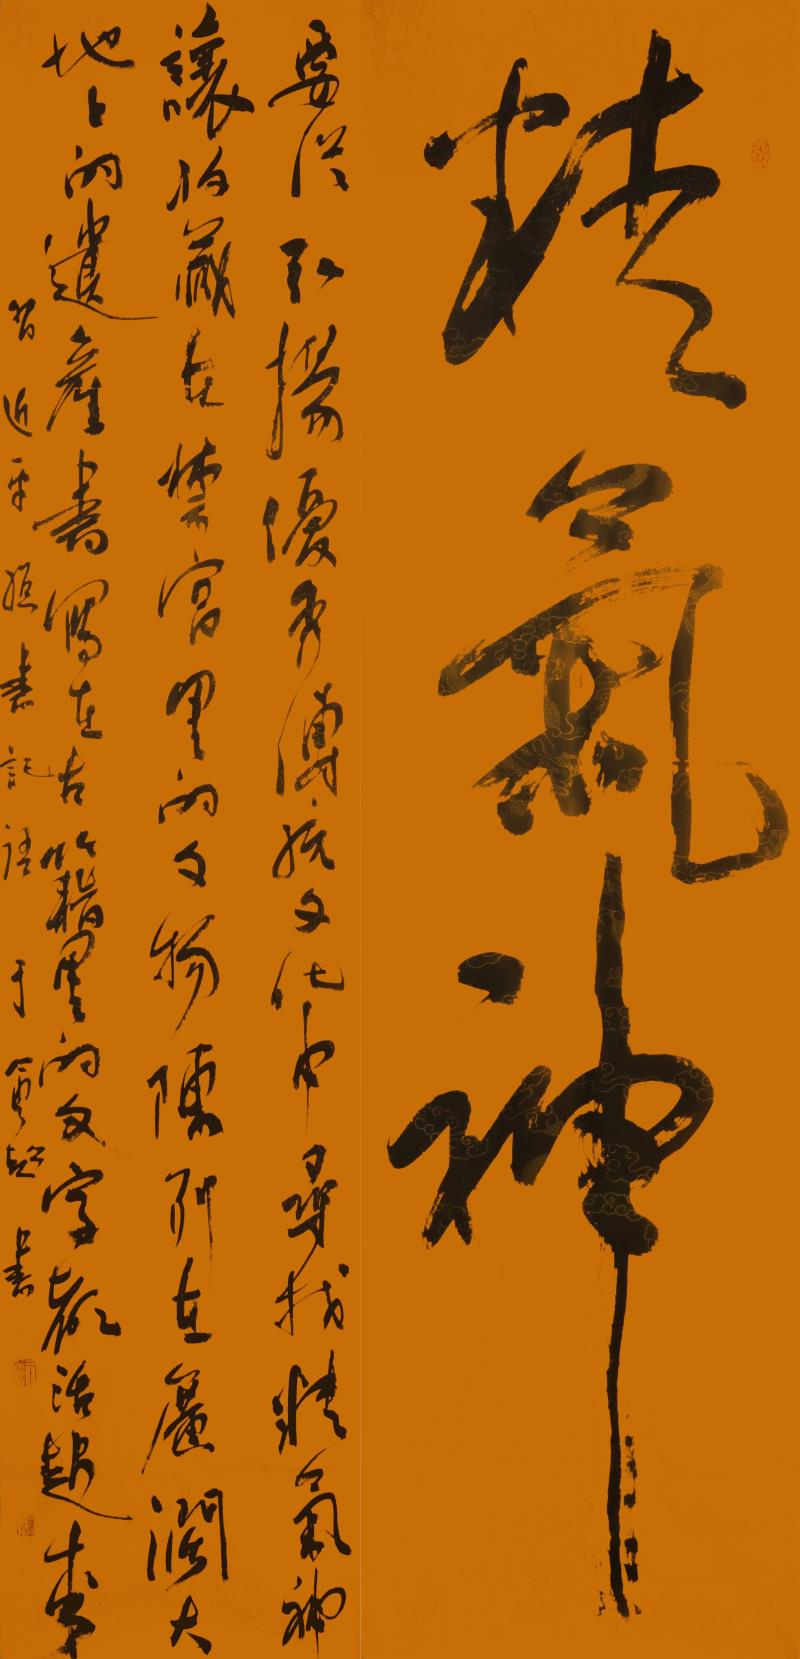 精氣神
要從弘揚優秀傳統文化中尋找精氣神
讓收藏在禁宮里的文物陳列在廣濶大
地上的遺產書寫在古籍里的文字都活起來
習近平總書記語 于 書